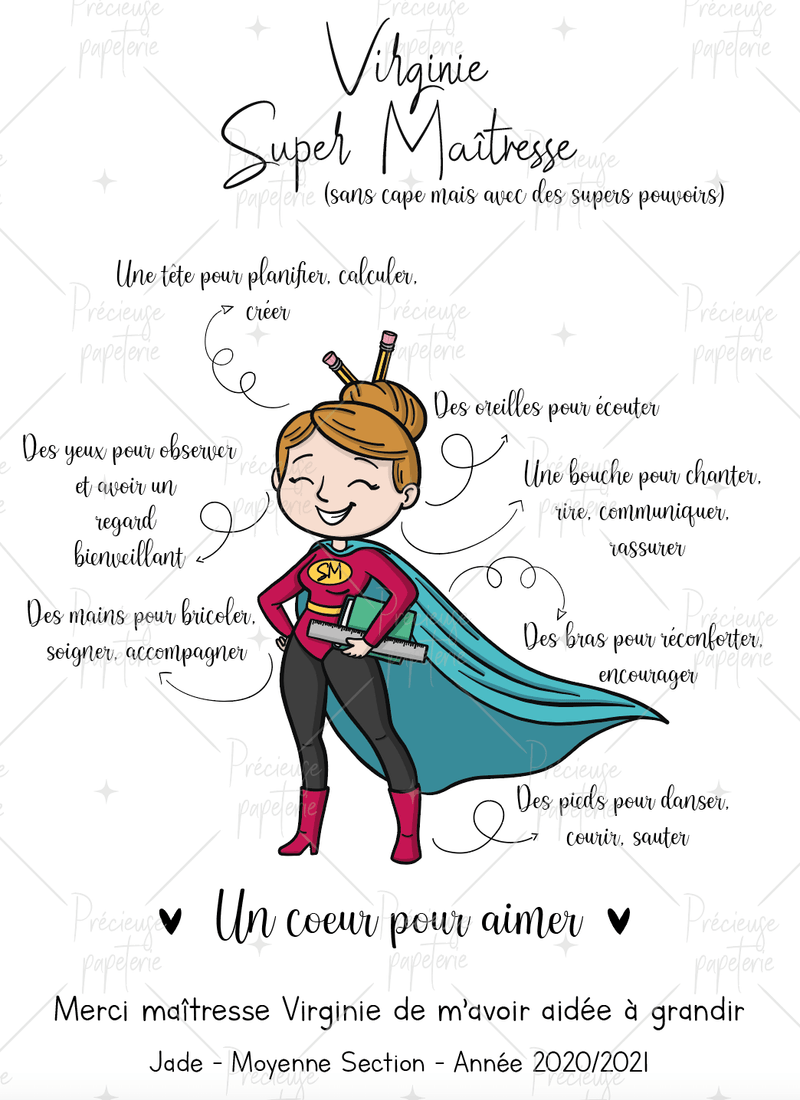 Virginie
Super Maîtresse
(sans cape mais avec des supers pouvoirs)
Une tête pour planifier, calculer,
créer
Des oreilles pour écouter
Des yeux pour observer
et avoir un
regard
bienveillant
Une bouche pour chanter,
rire, communiquer,
rassurer
SM
Des mains pour bricoler,
soigner, accompagner
Des bras pour réconforter,
encourager
Des pieds pour danser,
courir, sauter
Un coeur pour aimer
Merci maîtresse Virginie de m'avoir aidée à grandir
Jade - Moyenne Section - Année 2020/2021
Précieuse
papeterie